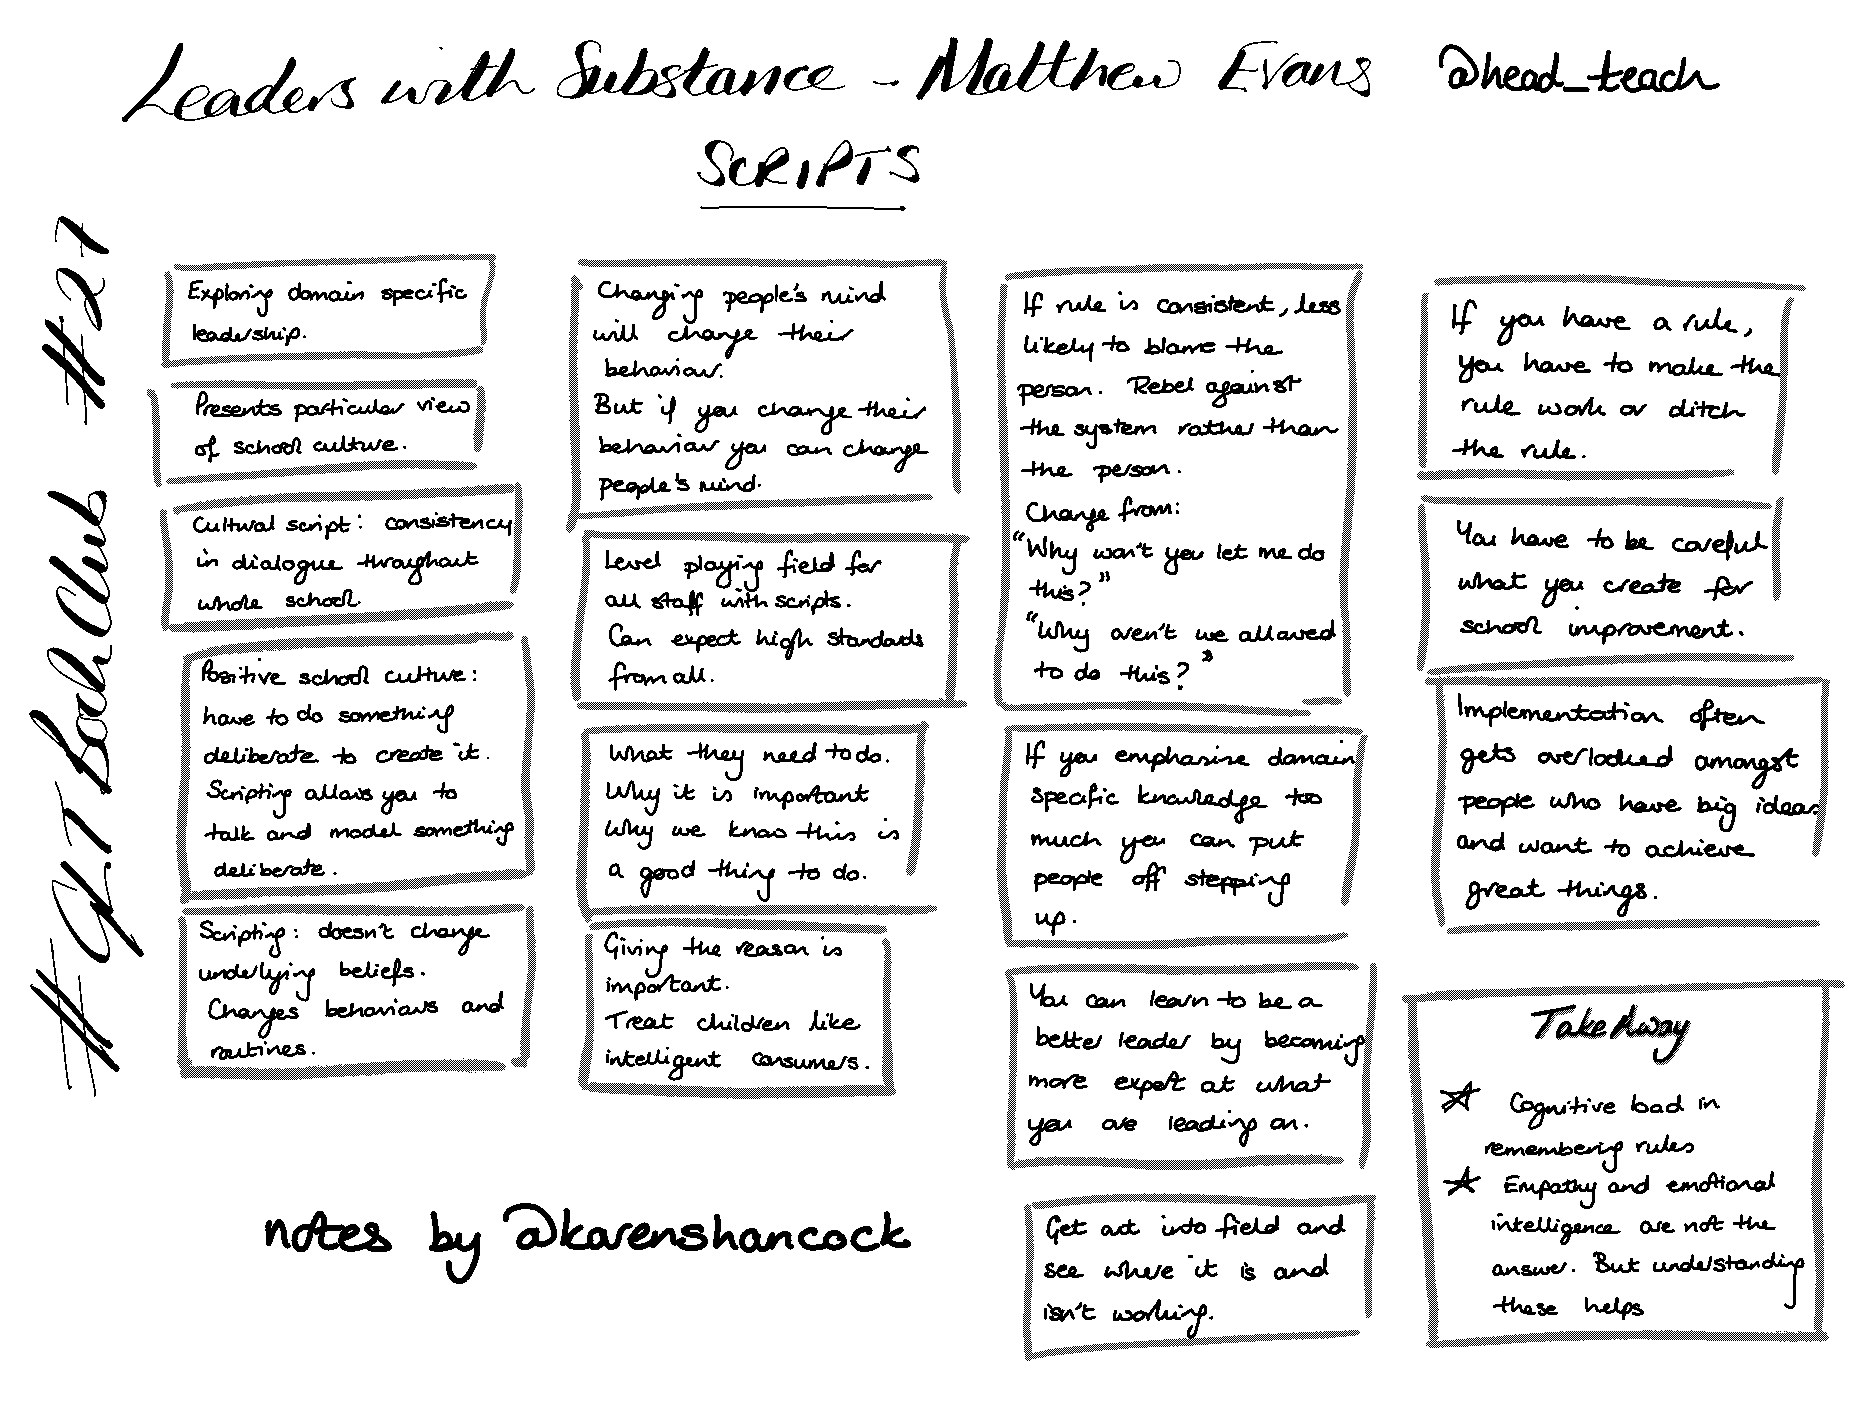 Leaders with Substance - Matthew Evans @head_teach
SCRIPTS
#GLT BookClub #27
Exploring domain specific
leadership.
Presents particular view
of school culture.
Cultural script: consistency
in dialogue throughout
whole school.
Positive school culture:
have to do something
deliberate to create it.
Scripting allows you to
talk and model something
deliberate.
Scripting: doesn't change
underlying beliefs.
Changes behaviours and
routines.
Changing people's mind
will change their
behaviour.
But if you change their
behaviour you can change
people's mind.
Level playing field for
all staff with scripts.
Can expect high standards
from all.
What they need to do.
Why it is important
Why we know this is
a good thing to do.
Giving the reason is
important.
Treat children like
intelligent consumers.
If rule is consistent, less
likely to blame the
person. Rebel against
the system rather than
the person.
Change from:
"Why won't you let me do
this?"
"Why aren't we allowed
to do this?"
If you emphasise domain
specific knowledge too
much you can put
people off stepping
up.
You can learn to be a
better leader by becoming
more expert at what
you are leading on.
Get out into field and
see where it is and
isn't working.
If you have a rule,
you have to make the
rule work or ditch
the rule.
You have to be careful
what you create for
school improvement.
Implementation often
gets overlooked amongst
people who have big ideas
and want to achieve
great things.
Take Away
☆ Cognitive load in
remembering rules
☆ Empathy and emotional
intelligence are not the
answer. But understanding
these helps
notes by @karenshancock